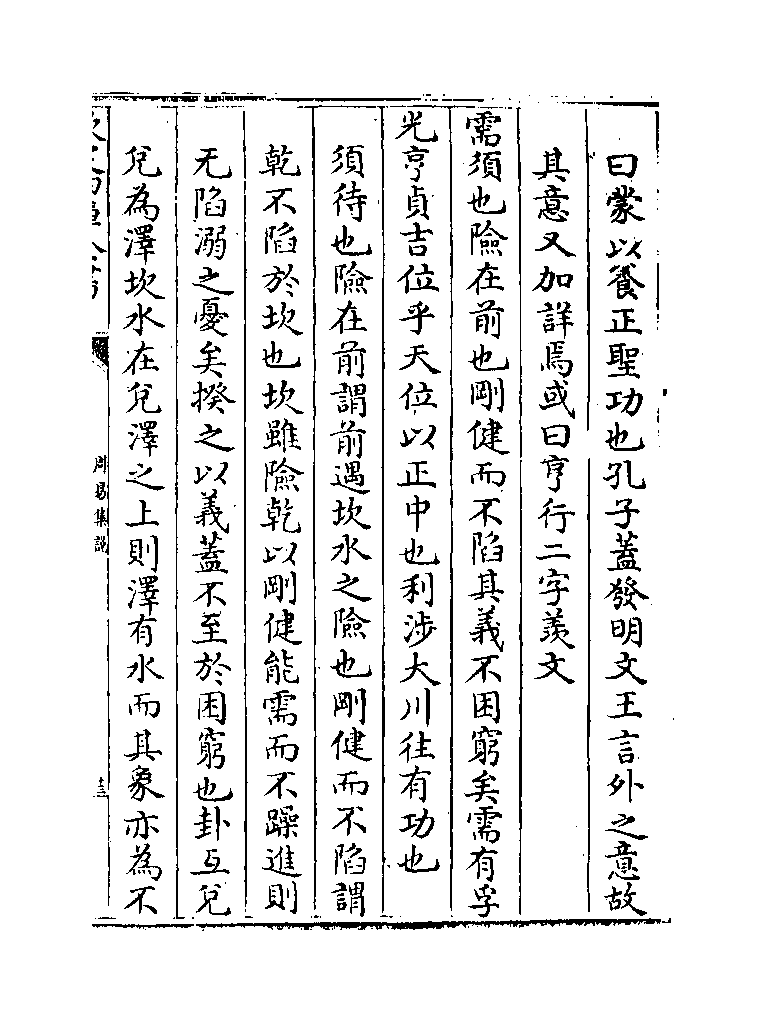 曰蒙以養正聖功也孔子蓋發明文王言外之意故
其意又加詳焉或曰亨行二字羨文
需須也險在前也剛健而不陷其義不困窮矣需有孚
光亨貞吉位乎天位以正中也利涉大川往有功也
須待也險在前謂前遇坎水之險也剛健而不陷謂
乾不陷於坎也坎雖險乾以剛健能需而不躁進則
无陷溺之憂矣揆之以義蓋不至於困窮也卦互兌
兌為澤坎水在兌澤之上則澤有水而其象亦為不
周易集說
十三